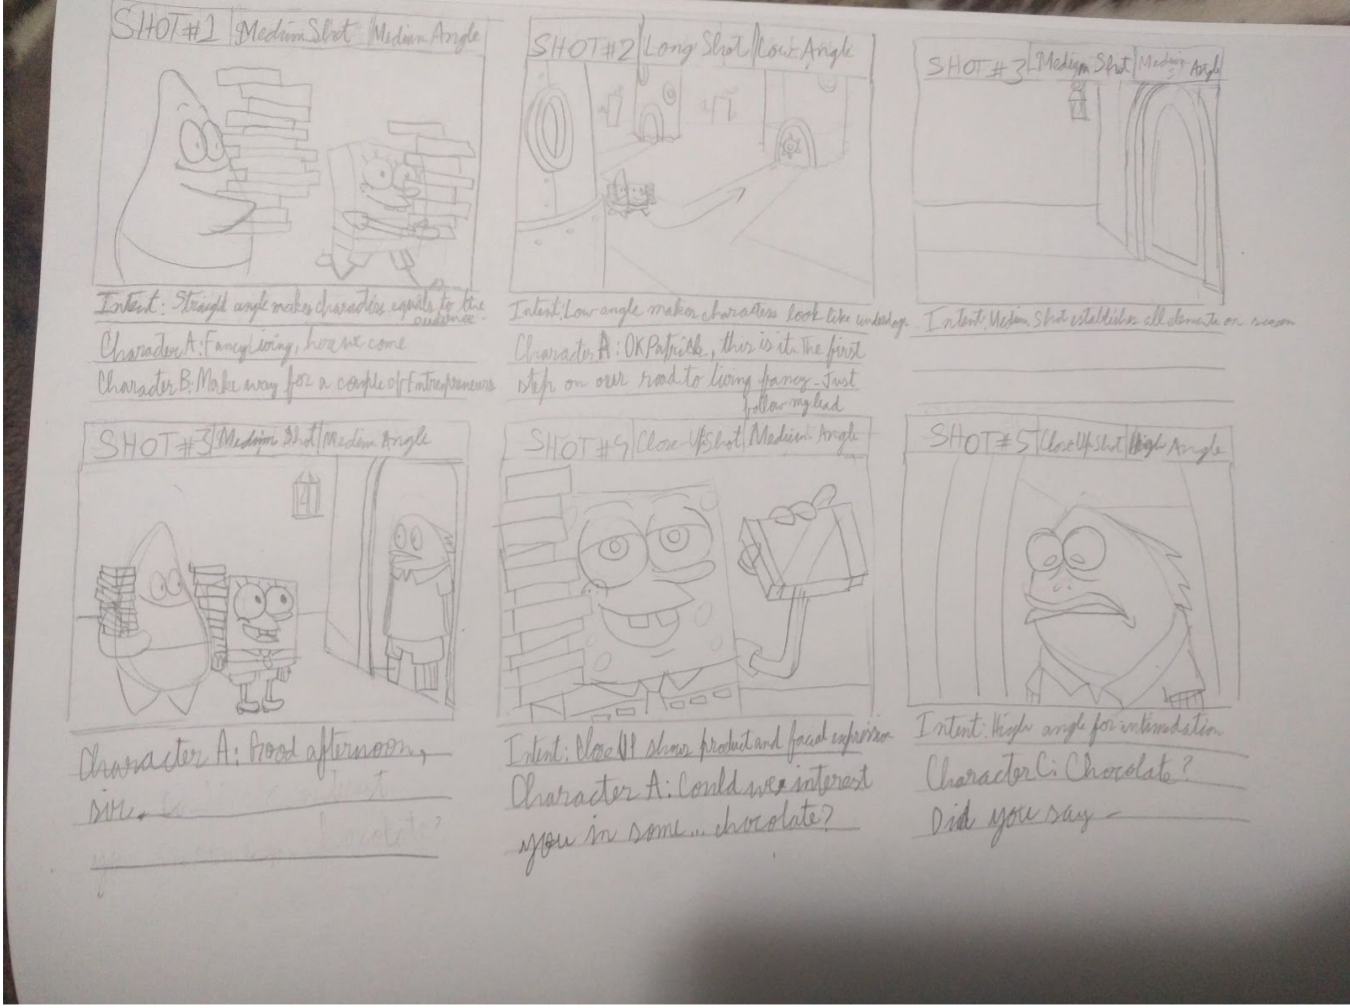 SHOT #1 Medium Shot Medium Angle
Intent: Straight angle makes characters equals to the
audience
Character A: Fancy living, here we come
Character B: Make way for a couple of Entrepreneurs
SHOT #2 Long Shot Low Angle
Intent: Low angle makes characters look like underdogs
Character A: OK Patrick, this is it. The first
step on our road to living fancy. Just
follow my lead
SHOT #3 Medium Shot Medium Angle
Intent: Medium Shot establishes all elements on
SHOT #3 Medium Shot Medium Angle
Character A: Good afternoon,
sir.
chocolate?
SHOT #4 Close Up Shot Medium Angle
Intent: Close Up shows product and facial expression
Character A: Could we interest
you in some... chocolate?
SHOT #5 Close Up Shot High Angle
Intent: High angle for intimidation
Character C: Chocolate?
Did you say -